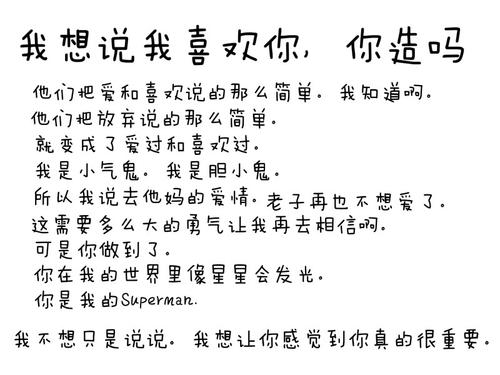 我想说我喜欢你，你造吗
他们把爱和喜欢说的那么简单。我知道啊。
他们把放弃说的那么简单。
就变成了爱过和喜欢过。
我是小气鬼。我是胆小鬼。
所以我说去他妈的爱情。老子再也不想爱了。
这需要多么大的勇气让我再去相信啊。
可是你做到了。
你在我的世界里像星星会发光。
你是我的Superman.
我不想只是说说。我想让你感觉到你真的很重要。